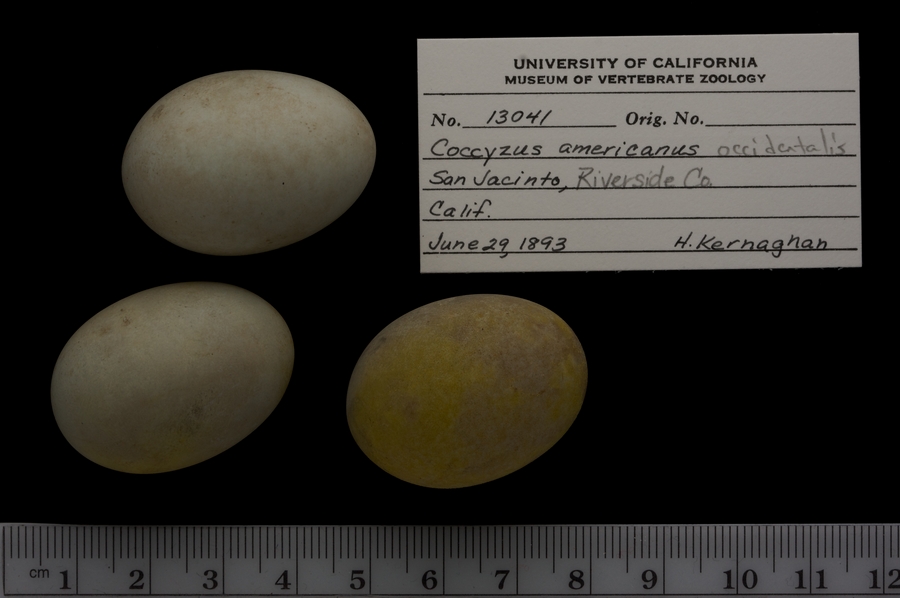 UNIVERSITY OF CALIFORNIA
MUSEUM OF VERTEBRATE ZOOLOGY
No. 13041 Orig. No.
Coccyzus americanus occidentalis
San Jacinto, Riverside Co.
Calif.
June 29, 1893 H. Kernaghan
cm 1 2 3 4 5 6 7 8 9 10 11 12